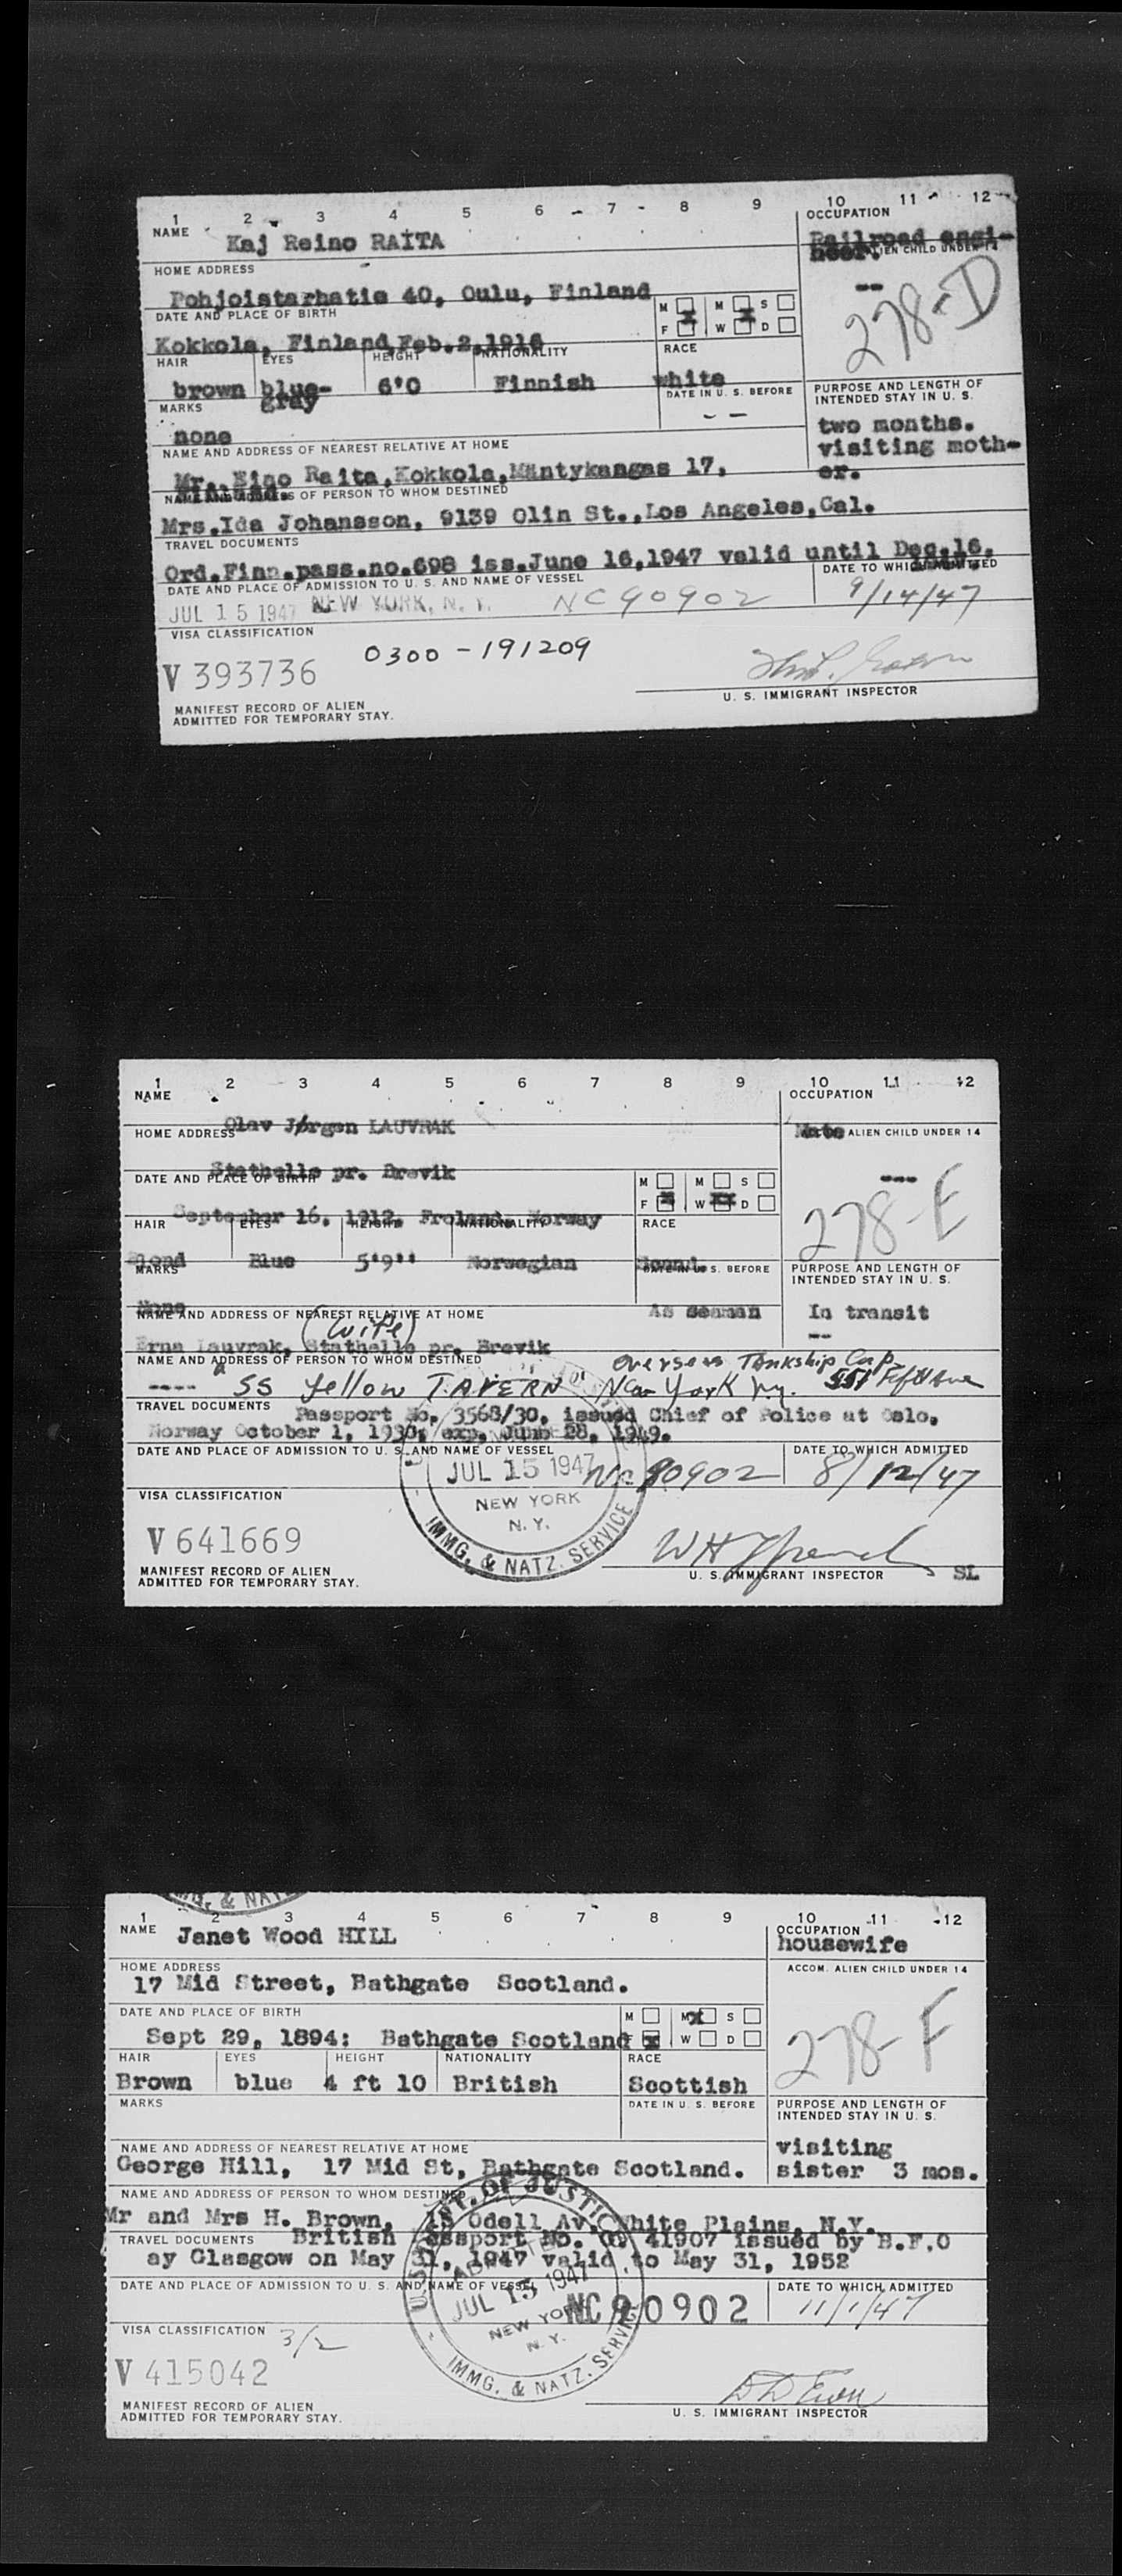 1 2 3 4 5 6 7 8 9 10 11 12
NAME Kaj Reino RAITA
OCCUPATION
Railroad engi-
neer.
ALIEN CHILD UNDER 14
--
278-D
HOME ADDRESS
Pohjoistarhatie 40, Oulu, Finland
DATE AND PLACE OF BIRTH
Kokkola, Finland Feb.2,1916
M M S
F X W X D
HAIR EYES HEIGHT NATIONALITY RACE
brown blue-gray 6'0 Finnish white
MARKS
none
DATE IN U. S. BEFORE
- -
PURPOSE AND LENGTH OF
INTENDED STAY IN U. S.
two months.
visiting moth-
er.
NAME AND ADDRESS OF NEAREST RELATIVE AT HOME
Mr. Eino Raita, Kokkola, Mäntykangas 17,
NAME AND ADDRESS OF PERSON TO WHOM DESTINED
Mrs.Ida Johansson, 9139 Olin St.,Los Angeles,Cal.
TRAVEL DOCUMENTS
Ord.Finn.pass.no.698 iss.June 16,1947 valid until Dec.16,
DATE AND PLACE OF ADMISSION TO U. S. AND NAME OF VESSEL
DATE TO WHICH ADMITTED
JUL 15 1947 NEW YORK, N. Y. NC90902 9/14/47
VISA CLASSIFICATION
0300-191209
V 393736
U. S. IMMIGRANT INSPECTOR
MANIFEST RECORD OF ALIEN
ADMITTED FOR TEMPORARY STAY.
1 2 3 4 5 6 7 8 9 10 11 12
NAME
OCCUPATION
Olav Jørgen LAUVRAK
Mate
HOME ADDRESS
ALIEN CHILD UNDER 14
Stathelle pr. Brevik
---
278-E
DATE AND PLACE OF BIRTH
September 16, 1912, Froland, Norway
M M S
F X W XX D
HAIR EYES HEIGHT NATIONALITY RACE
Blond Blue 5'9" Norwegian Scand.
MARKS
DATE IN U. S. BEFORE
PURPOSE AND LENGTH OF
INTENDED STAY IN U. S.
None
As seaman
In transit
--
NAME AND ADDRESS OF NEAREST RELATIVE AT HOME
(wife)
Erna Lauvrak, Stathelle pr. Brevik
NAME AND ADDRESS OF PERSON TO WHOM DESTINED
Overseas Tankship Corp.
---- SS Yellow TAVERN New York N.y. 551 Fifth Ave
TRAVEL DOCUMENTS
Passport No. 3568/30, issued Chief of Police at Oslo,
Norway October 1, 1930, exp. June 28, 1949.
DATE AND PLACE OF ADMISSION TO U. S. AND NAME OF VESSEL
DATE TO WHICH ADMITTED
JUL 15 1947 NC 90902 8/12/47
NEW YORK
N. Y.
IMMG. & NATZ. SERVICE
VISA CLASSIFICATION
V 641669
U. S. IMMIGRANT INSPECTOR
SL
MANIFEST RECORD OF ALIEN
ADMITTED FOR TEMPORARY STAY.
1 2 3 4 5 6 7 8 9 10 11 12
NAME Janet Wood HILL
OCCUPATION
housewife
HOME ADDRESS
ACCOM. ALIEN CHILD UNDER 14
17 Mid Street, Bathgate Scotland.
278-F
DATE AND PLACE OF BIRTH
Sept 29, 1894: Bathgate Scotland
M M X S
F X W D
HAIR EYES HEIGHT NATIONALITY RACE
Brown blue 4 ft 10 British Scottish
MARKS
DATE IN U. S. BEFORE
PURPOSE AND LENGTH OF
INTENDED STAY IN U. S.
visiting
sister 3 mos.
NAME AND ADDRESS OF NEAREST RELATIVE AT HOME
George Hill, 17 Mid St, Bathgate Scotland.
NAME AND ADDRESS OF PERSON TO WHOM DESTINED
Mr and Mrs H. Brown, 15 Odell Av, White Plains, N.Y.
TRAVEL DOCUMENTS British Passport No. 41907 issued by B.F.O
ay Glasgow on May 31, 1947 valid to May 31, 1952
DATE AND PLACE OF ADMISSION TO U. S. AND NAME OF VESSEL
DATE TO WHICH ADMITTED
U.S. DEPT. OF JUSTICE
ADMITTED
JUL 15 1947
NEW YORK
N. Y.
IMMG. & NATZ. SERVICE
NC 90902
11/1/47
VISA CLASSIFICATION 3/2
V 415042
U. S. IMMIGRANT INSPECTOR
MANIFEST RECORD OF ALIEN
ADMITTED FOR TEMPORARY STAY.